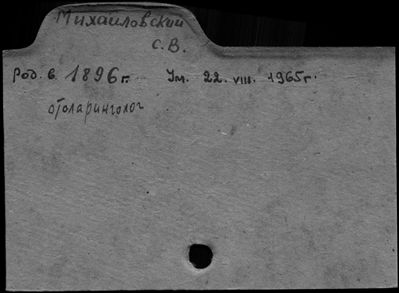 Михайловский
С.В.
Род. в 1896г. Ум. 22. VIII. 1965г.
отоларинголог